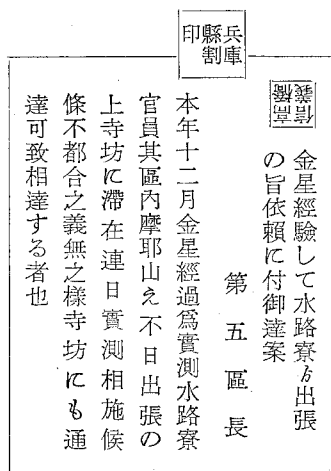 兵庫
縣割
印
高橋
信義
金星經驗して水路寮ゟ出張
の旨依賴に付御達案
第五區長
本年十二月金星經過爲實測水路寮
官員其區內摩耶山え不日出張の
上寺坊に滯在連日實測相施候
條不都合之義無之樣寺坊にも通
達可致相達する者也